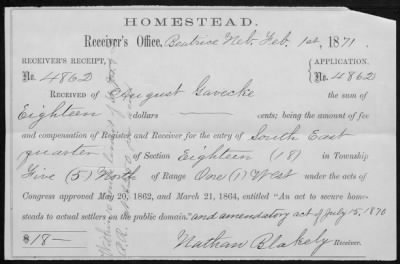 HOMESTEAD.
Receiver's Office, Beatrice Neb. Feb. 1st, 1871.
RECEIVER'S RECEIPT, APPLICATION.
No. 4862 No. 4862
RECEIVED OF August Gavecke the sum of
Eighteen dollars cents; being the amount of fee
and compensation of Register and Receiver for the entry of South East
quarter of Section Eighteen (18) in Township
Five (5) North of Range One (1) West under the acts of
Congress approved May 20, 1862, and March 21, 1864, entitled "An act to secure home-
steads to actual settlers on the public domain." and amendatory act of July 15, 1870
$18— Nathan Blakely Receiver.